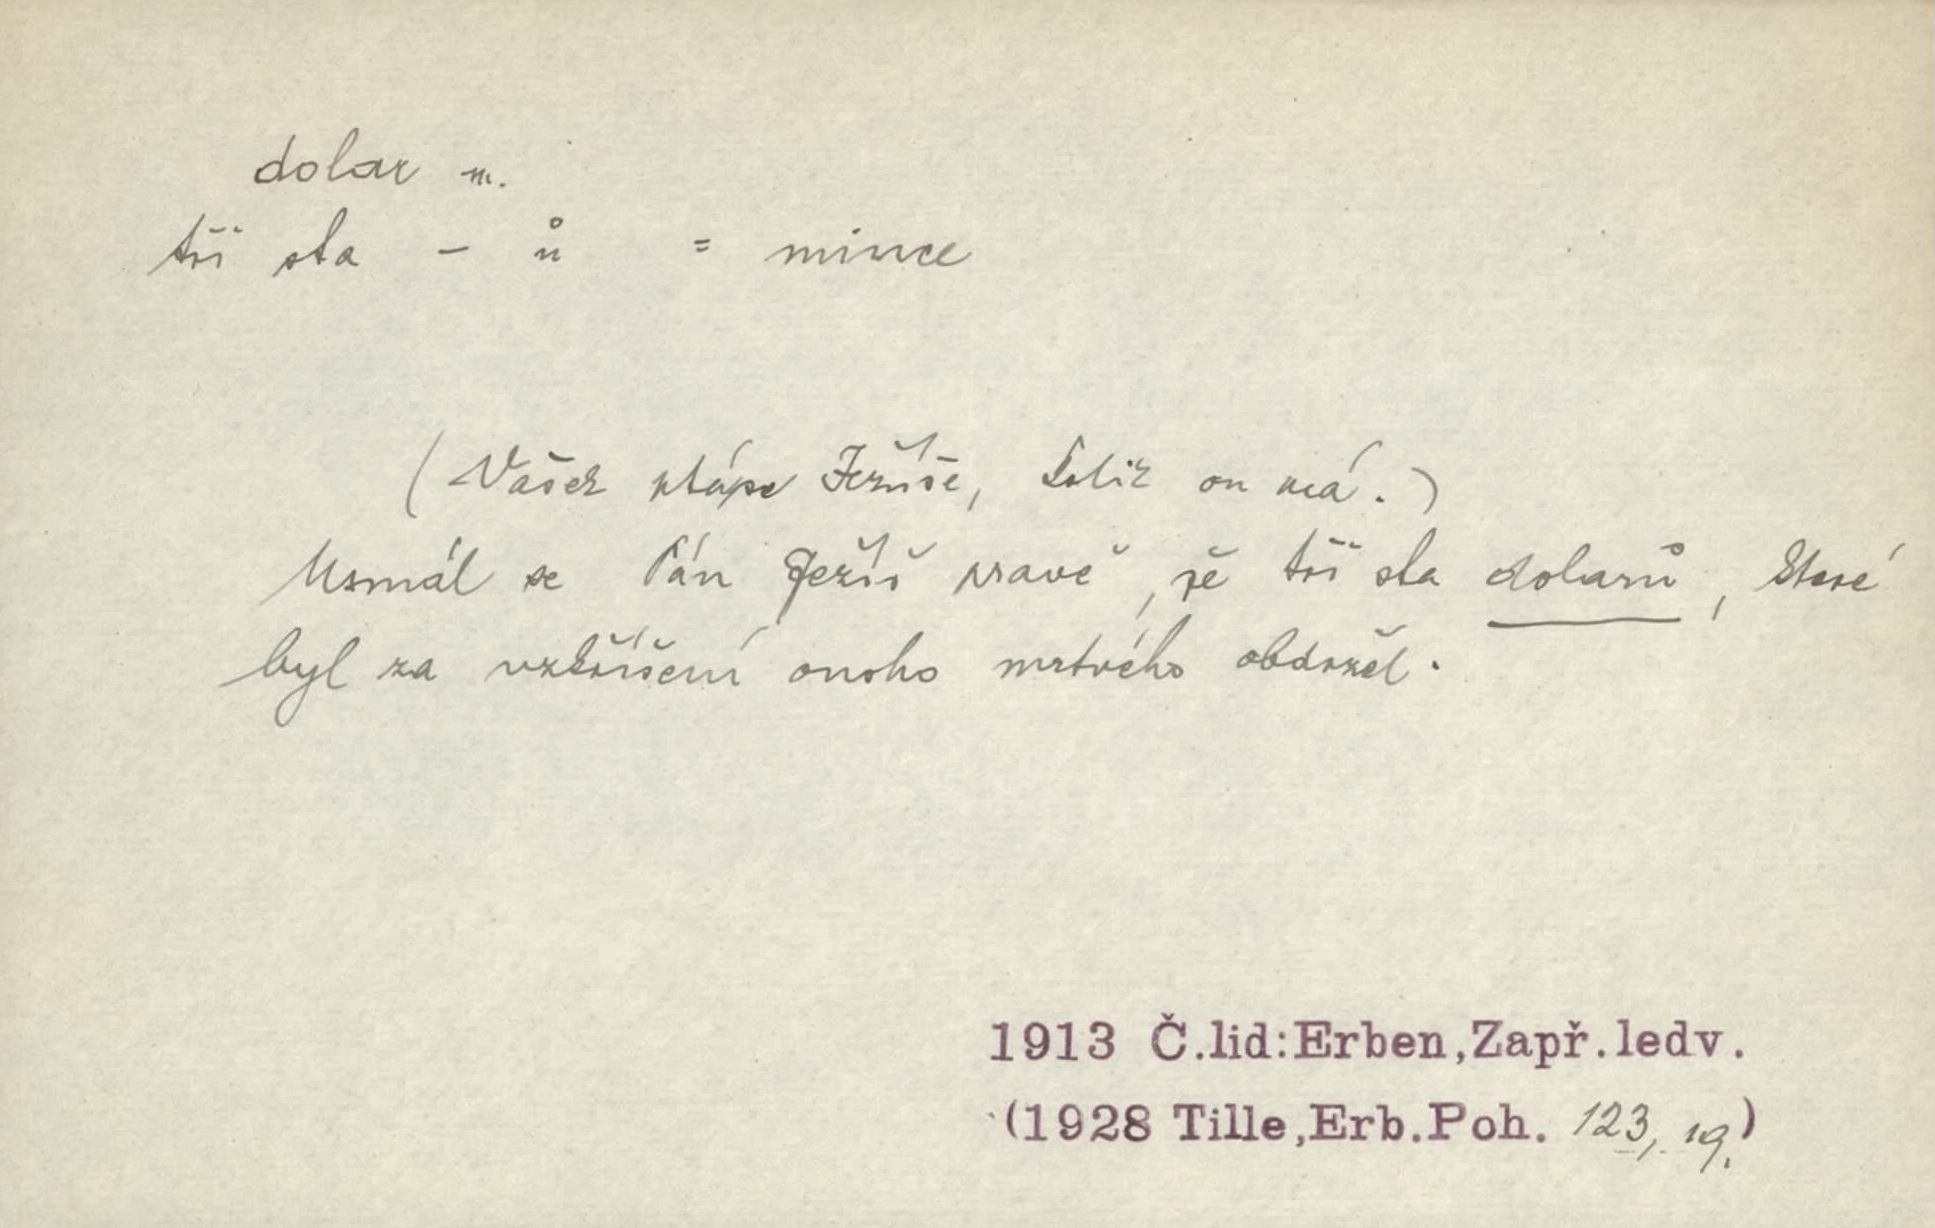 dolar m.
tři sta - ů = mince
(Vašek ptápe Ježíše, kolik on má.)
Usmál se Pán Ježíš pravě, že tři sta dolarů, které
byl za vzkříšení onoho mrtvého obdržel.
1913 Č.lid:Erben,Zapř.ledv.
(1928 Tille,Erb.Poh. 123, 19.)